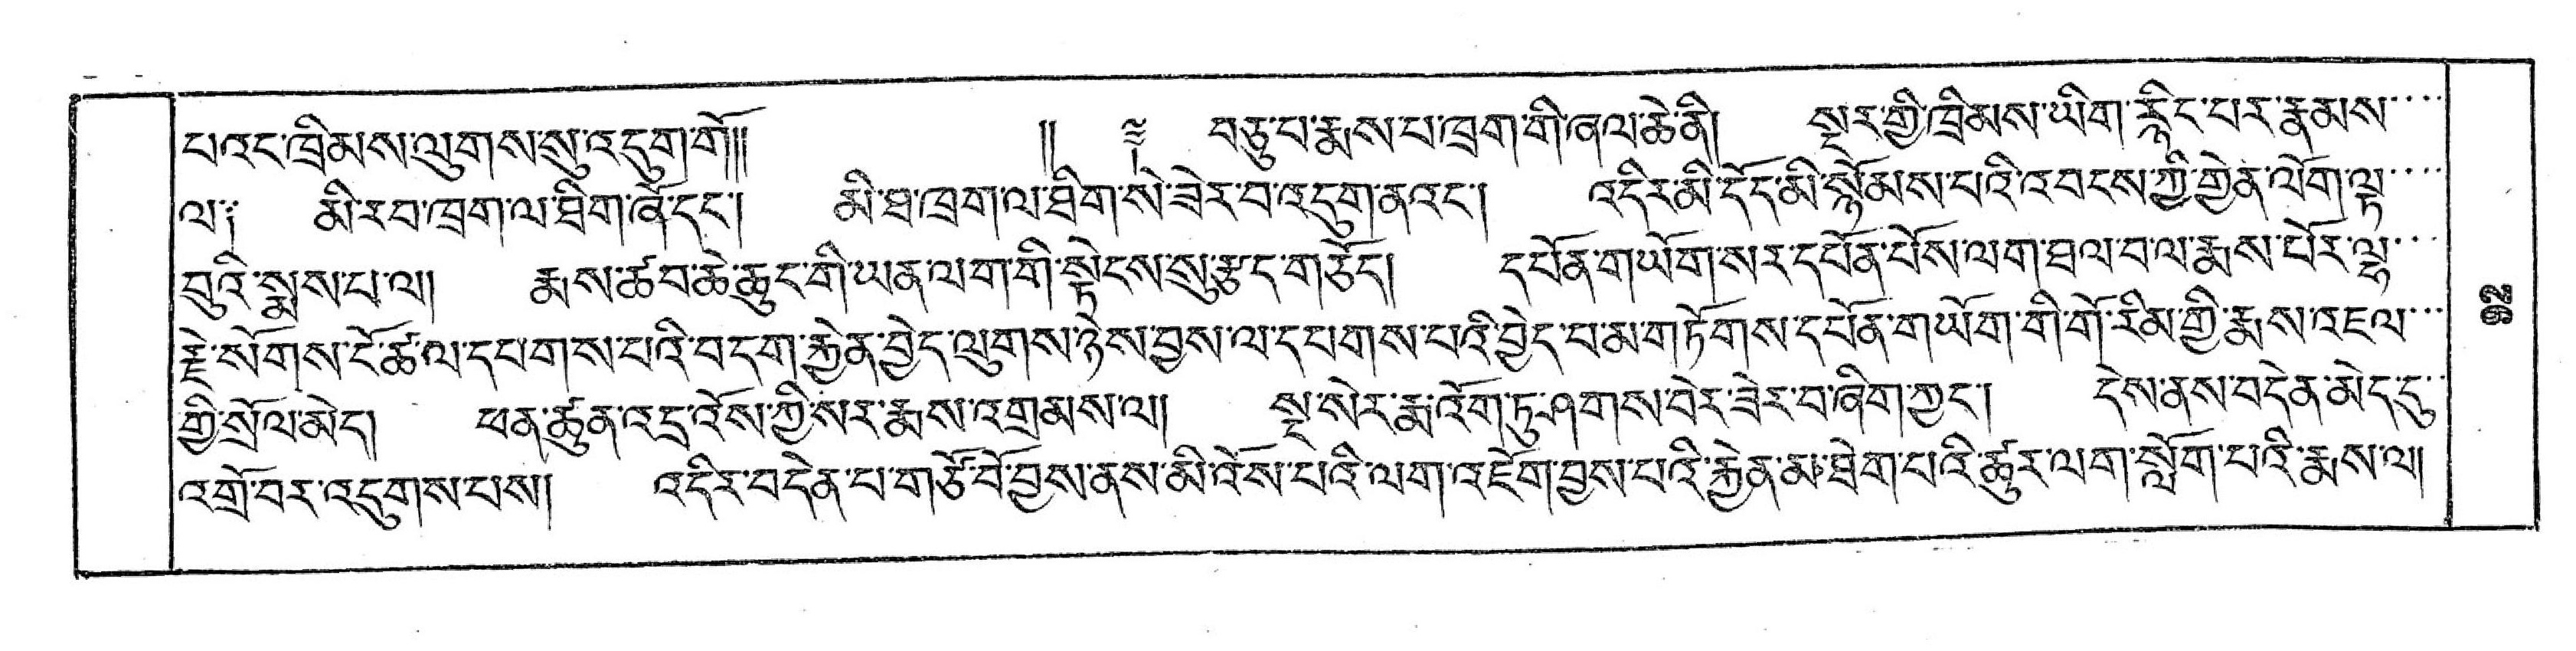 པ་འང་ཁྲིམས་ལུགས་སུ་འདུག་གོ།། །། ༈ བཅུ་བ་རྨས་པ་ཁྲག་གི་ཞལ་ཆེ་ནི། སྔར་གྱི་ཁྲིམས་ཡིག་རྙིང་པར་རྣམས་
ལ༑ མི་རབ་ཁྲག་ལ་ཐིག་ཞོ་དང༌། མི་ཐ་ཁྲག་ལ་ཐིག་སེ་ཟེར་བ་འདུག་ནའང༌། འདིར་མི་དོད་མི་སྙོམས་པའི་འབངས་ཀྱི་གྱེན་ལོག་ལྟ་
བུའི་སྨྲས་པ་ལ། རྨས་ཚབ་ཆེ་ཆུང་གི་ཡན་ལག་གི་སྟེངས་སུ་རྩད་གཅོད། དཔོན་གཡོག་སར་དཔོན་པོས་ལག་ཐལ་བ་ལ་རྨས་པོར་ལྷ་
རྗེ་སོགས་ངོ་ཚ་ལ་དཔགས་པའི་བདག་རྐྱེན་བྱེད་ལུགས་ཉེས་བྱས་ལ་དཔགས་པའི་བྱེད་པ་མ་གཏོགས་དཔོན་གཡོག་གི་གོ་རིམ་གྱི་རྨས་འཇལ་
གྱི་སྲོལ་མེད། ཕན་ཚུན་འདྲ་འོས་ཀྱི་སར་རྨས་འགྲམས་ལ། སྔ་སེར་རྨ་འོག་ཏུ་ཤགས་བེར་ཟེར་བ་ཞིག་ཀྱང༌། དེས་ནས་བདེན་མེད་དུ་
འགྲོ་བར་འདུགས་པས། འདིར་བདེན་པ་གཙོ་བོ་བྱས་ནས་མི་འོས་པའི་ལག་འཛོག་བྱས་པའི་རྐྱེན་མ་ཐེག་པའི་ཚུར་ལག་སློག་པའི་རྨས་ལ།